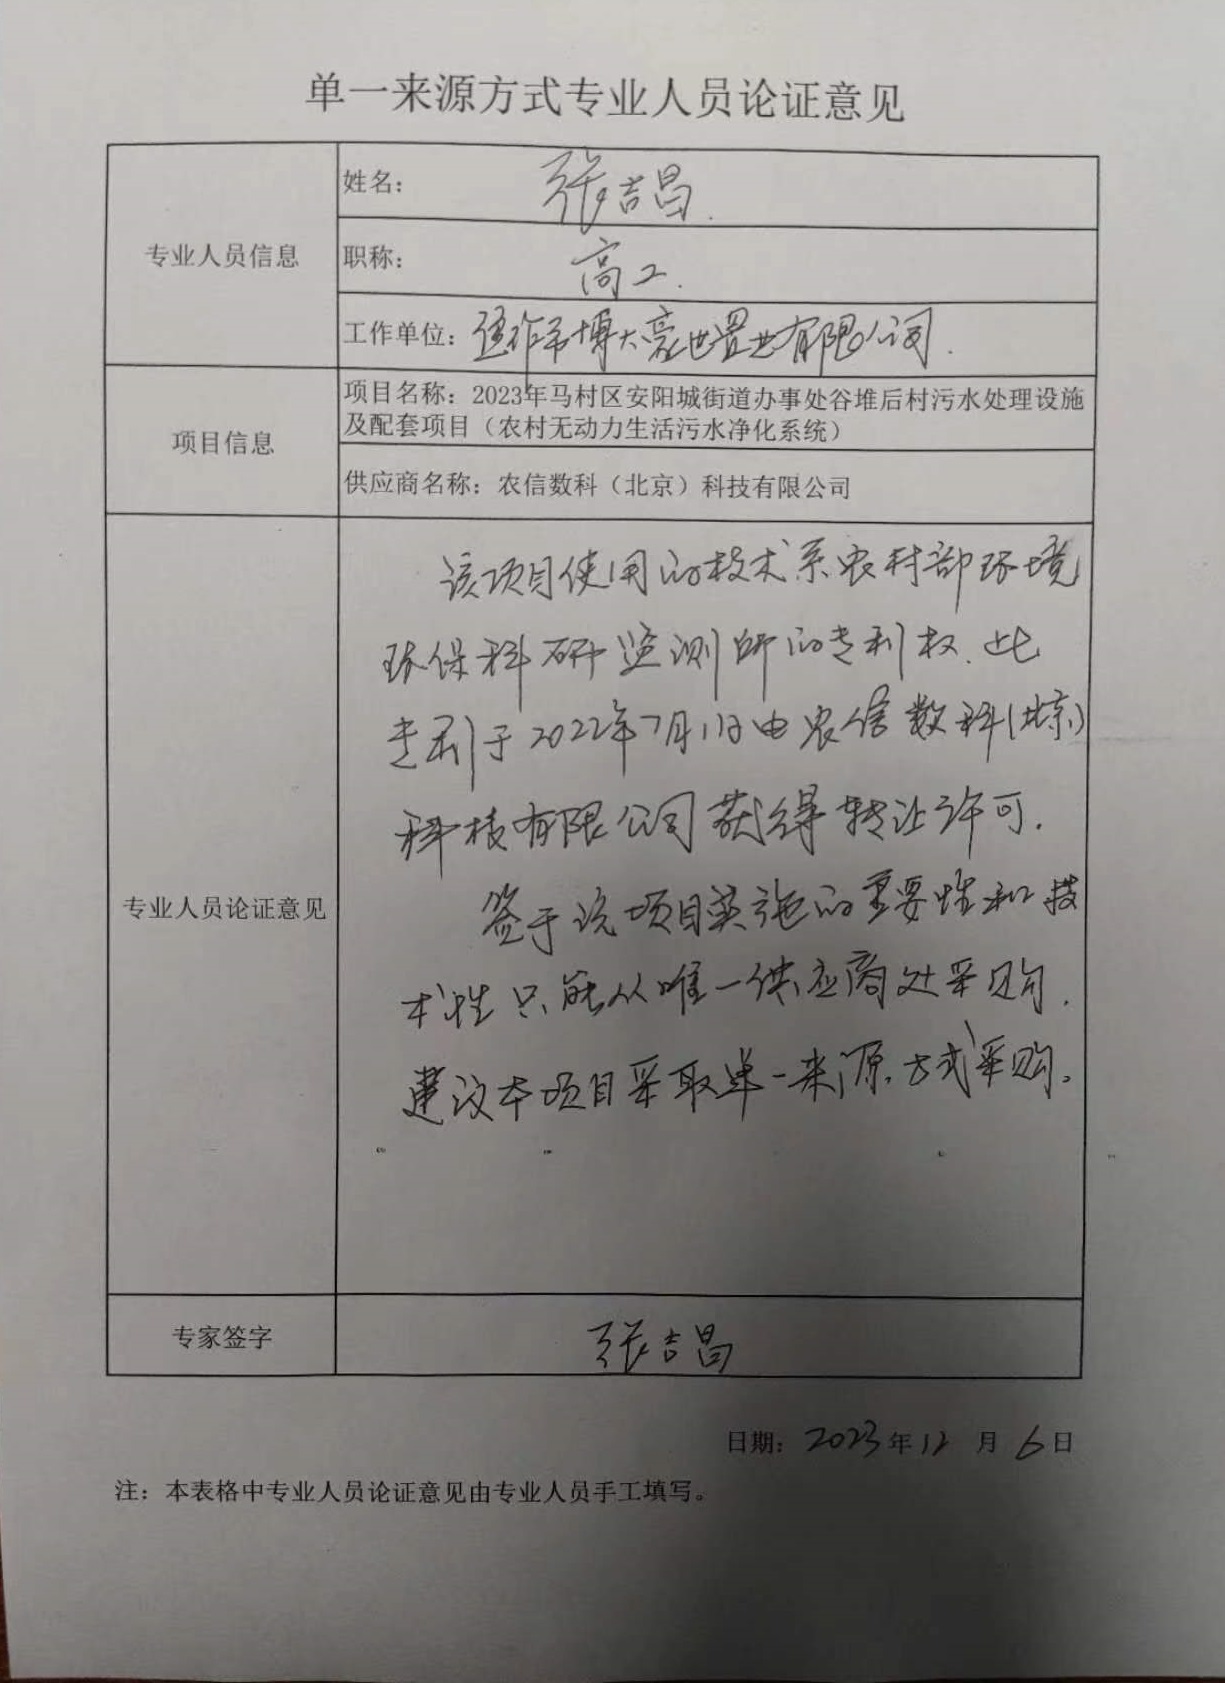 单一来源方式专业人员论证意见
专业人员信息
姓名：张吉昌.
职称：高工.
工作单位：焦作市博大豪世置业有限公司.
项目信息
项目名称：2023年马村区安阳城街道办事处谷堆后村污水处理设施
及配套项目（农村无动力生活污水净化系统）
供应商名称：农信数科（北京）科技有限公司
专业人员论证意见
该项目使用的技术系农村部环境
环保科研监测所的专利权.此
专利于2022年7月11日由农信数科(北京)
科技有限公司获得转让许可.
签于该项目实施的重要性和技
术性只能从唯一供应商处采购.
建议本项目采取单一来源方式采购。
专家签字
张吉昌
日期：2023年12月6日
注：本表格中专业人员论证意见由专业人员手工填写。